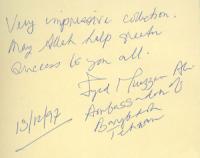 Very impressive collection.
May Allah help greater
success to you all.
Syed
Ambassador of
Bangladesh
Tehran
13/12/97